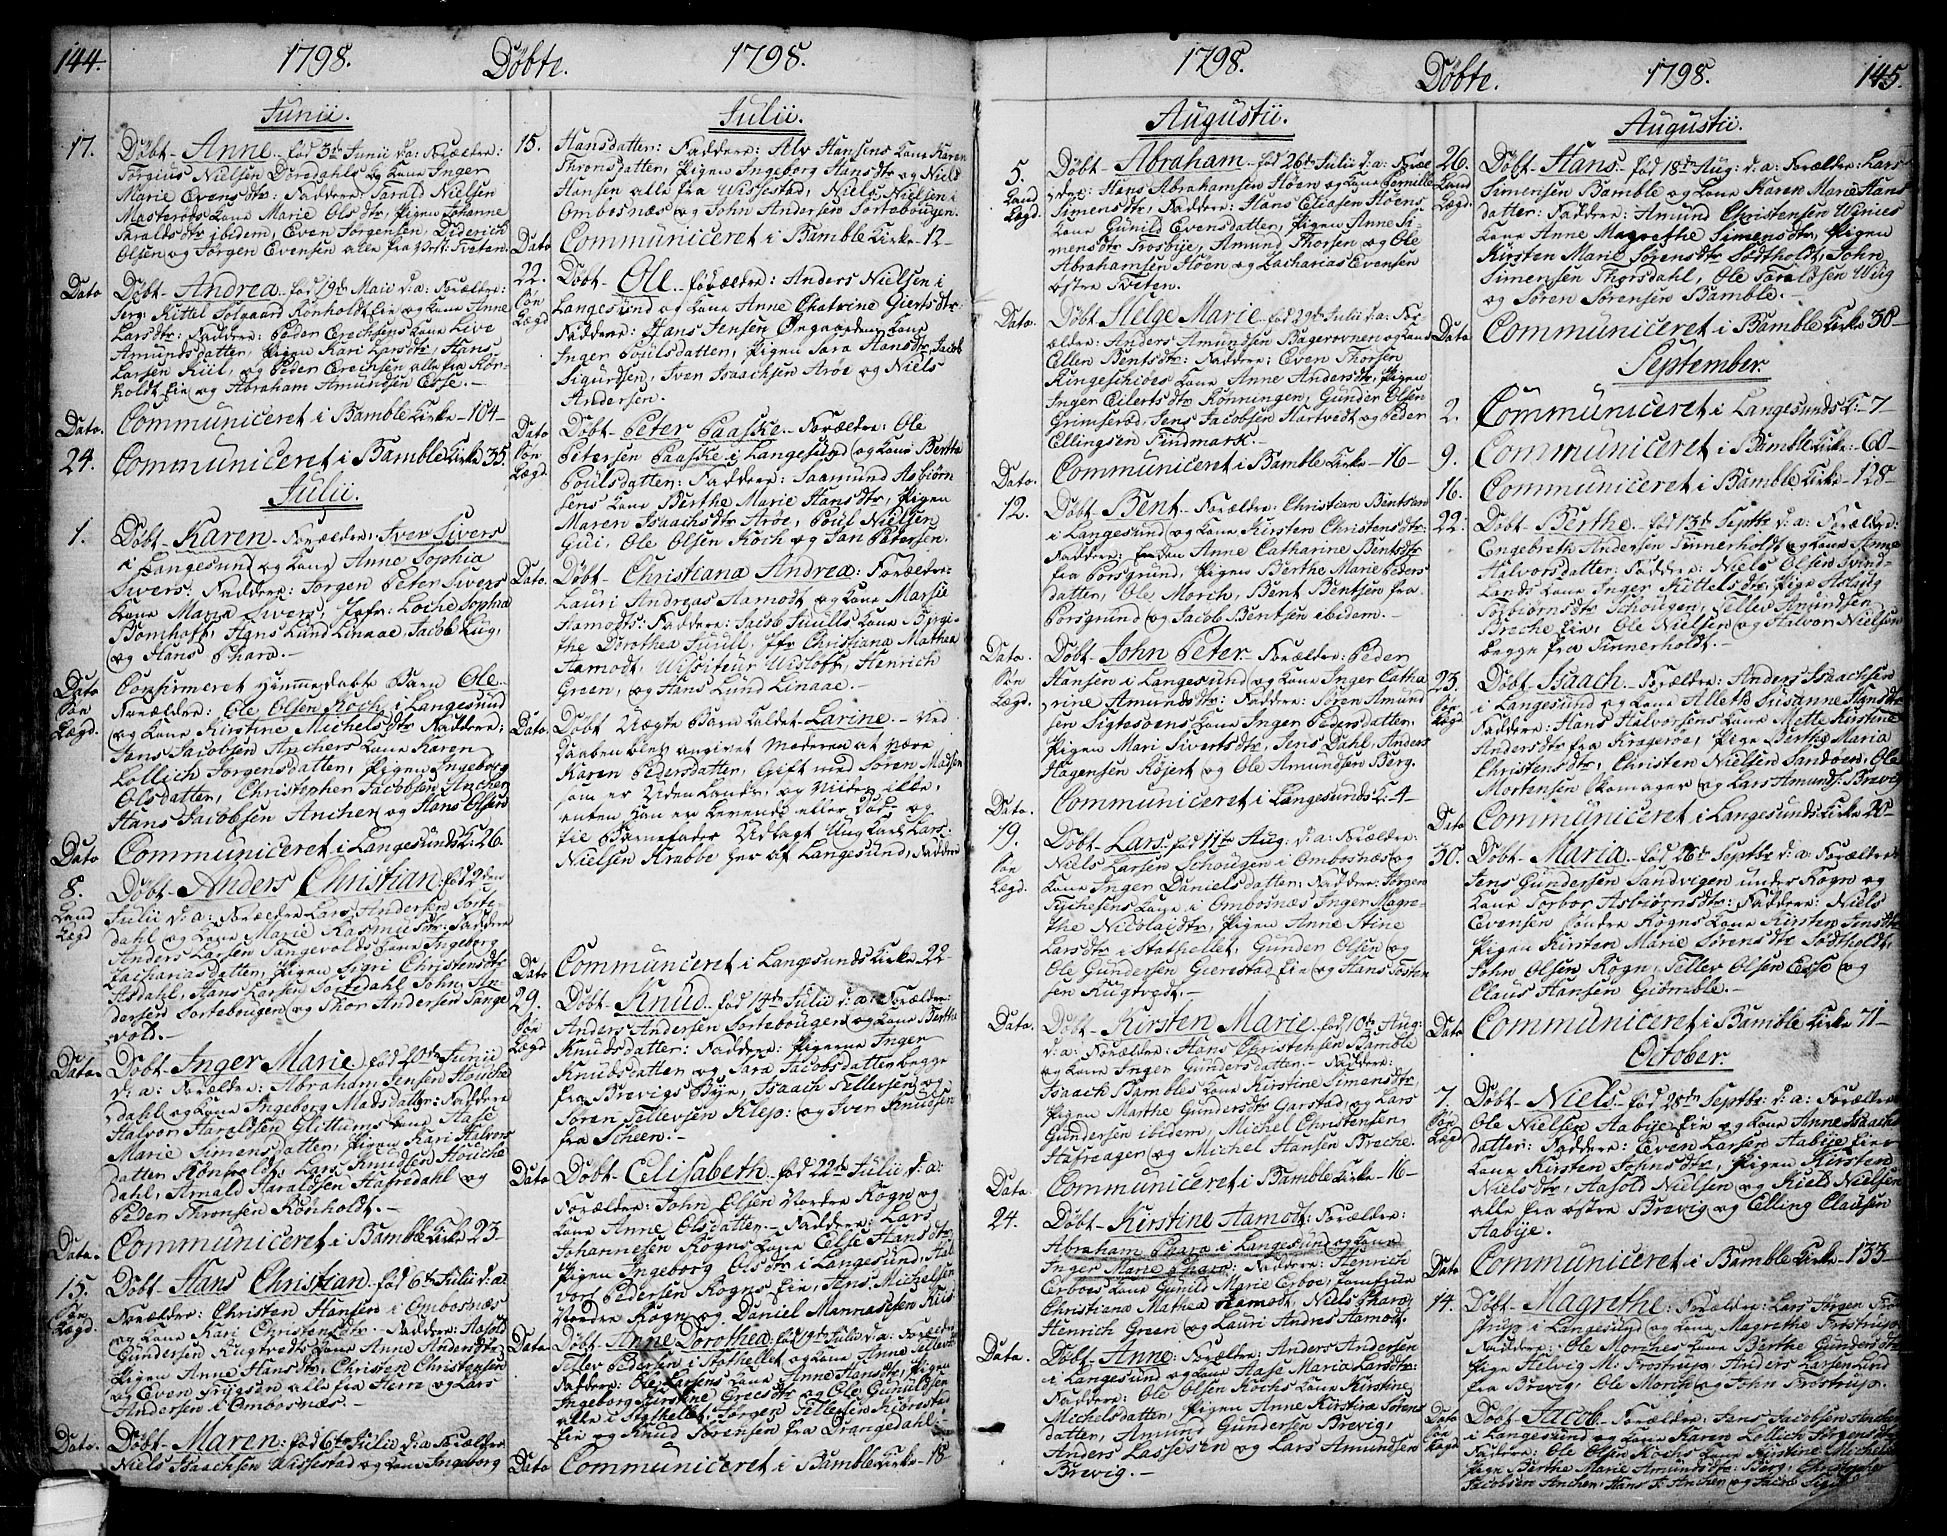 144. 1798. Döbte. 1798.
Junii.
17. Döbt Anne född 3de Junii d: a: Forældre:
Torgius Nielsen Dordahls og kone Inger
Marie Evensdtr: Faddere: Tarald Nielsen
Masterøds kone Marie Olsdtr, Pigen Johanne
Taraldsdtr ibidem, Even Jørgensen, Diderich
Olsen og Jørgen Evensen alle fra Tveten.
Dato Döbt Andrea fød 19de Maii d: a: Forældre:
Serg: Kittel Solgaard Rönholdt Eie og kone Anne
Larsdtr: Faddere: Peder Erechsens kone Live
Amundsdatter, Pigen Kari Larsdtr, Hans
Larsen Kiil, og Peder Erechsen alle fra Rön-
holdt Eie og Abraham Amundsen Esse.
Dato. Communiceret i Bamble Kirke 104
24. Communiceret i Bamble Kirke 35.
Julii.
1. Döbt Karen Forældre: Iver Sivers
i Langesund og kone Anne Sophia
Sivers. Faddere: Jørgen Peter Sivers
kone Maria Sivers, Jfr: Sophia
Bomhoff, Hans Lund Linaae, Jacob Lug,
og Hans Pharo.
Dato Confirmeret Hiemmedøbte Barn Ole
Søn Forældre: Ole Olsen Koch i Langesund
Lægd. og kone Kirstine Michelsdtr Faddere:
Jens Jacobsen Anchers kone Karen
Lollich Jørgensdatter, Pigen Ingeborg
Olsdatter, Christopher Jacobsen Anchen
Hans Jacobsen Anchen og Hans Olsen
Dato Communiceret i Langesunds K: 26.
8. Döbt Anders Christian fød 2den
Land Julii d: a: Forældre Lars Andersen Sorte-
Lægd dahl og kone Marie Rasmusdtr: Faddere
Anders Larsen Tangevalds kone Ingeborg
Zachariasdatter, Pigen Sigri Christensdtr
Asdahl, Hans Larsen Sortedahl, John An-
dersen Sortebougen og Thor Andersen Tange
vold.
Dato. Döbt Inger Marie fød 1ste Junii
d: a: Forældre: Abraham Jensen Houche
dahl og kone Ingeborg Madsdatter: Faddere
Halvor Haraldsen Glittums kone Aase
Marie Simensdatter, Pigen Kari Halvors
datter Rönholdt, Lars Knudsen Houche
dahl, Arnold Haraldsen Hafredahl og
Peder Thronsen Rönholdt.
Dato. Communiceret i Bamble Kirke 23
15. Döbt Hans Christian fød 6te Julii d: a:
Søn Forældre: Christen Hansen i Ombosnæs
Lægd. og kone Kari Christensdtr. Faddere: Aasold
Gundersen Rugtvedts kone Anne Andersdtr
Pigen Anne Hansdtr, Christen Christensen
og Even Trygsen alle fra Herre og Lars
Andersen i Ombosnæs.
Dato. Döbt Maren: fød 6te Julii d: a: Forældre
Niels Isaachsen Wissestad og kone Ingeborg
Julii.
15. Hansdatter: Faddere: Alv Hansens kone Karen
Thronsdatter, Pigen Ingeborg Hansdtr og Niels
Hansen alle fra Wissestad, Niels Nielsen i
Ombosnæs og John Andersen Sortebougen.
Dato Communiceret i Bamble Kirke 12
22. Döbt Ole Forældre: Anders Nielsen i
Søn Langesund og kone Anne Chatrine Giertsdtr
Lægd Faddere: Hans Jensen Ørgaardens kone
Inger Poulsdatter, Pigen Sara Hansdtr, Jacob
Sigurdsen, Iver Isaachsen Arøe og Niels
Andersen.
Dato Döbt Peter Paaske Forældre: Ole
Søn Petersen Paaske i Langesund og kone Berthe
Lægd. Poulsdatter: Faddere: Saamund Asbiørn
sens kone Berthe Marie Hansdtr, Pigen
Maren Isaachsdtr Arøe, Poul Nielsen
Gui, Ole Olsen Koch og Jan Petersen.
Dato. Döbt Christiana Andrea: Forældre:
Lauri Andreas Aamodt og kone Marsie
Aamodts: Faddere: Jacob Juulls kone Birgi-
the Dorothea Juull, Jfr Christiana Mathea
Aamodt, Wisiteur Wisloff, Henrich
Green, og Hans Lund Linaae.
Dato. Döbt Uægte Barn kaldet Larine. Ved
Daaben blev angivet Moderen at være
Karen Pedersdatter, Gift med Søren Madsen
som er Uden Lands, og Viden ikke,
enten han er levende eller död, og
til Barnefader Udlagt Ung Karl Lars
Nielsen Krabbe her af Langesund, Faddere
Dato Communiceret i Langesunds Kirke 22
29. Döbt Knud fød 14de Julii d: a: Forældre:
Søn Anders Andersen Sortebougen og kone Berthe
Lægd Knudsdatter: Faddere: Pigerne Inger
Knudsdatter og Sara Jacobsdatter begge
fra Brevigs Bye, Isaach Tellefsen og
Søren Tellevsen Klep: og Iver Knudsen
fra Scheen.
Dato. Döbt Elisabeth fød 22de Julii d: a:
Forældre: John Olsen Nordre Rogn og
kone Anne Olsdatter. Faddere: Lars
Johannesen Rogns kone Else Hansdtr
Pigen Ingeborg Olsdtr i Langesund, Hal
vor Pedersen Rogns Eie, Jens Michelsen
Nordre Rogn og Daniel Mannasesen Riis
Dato Döbt Anne Dorothea fød 19de Julii d: a: Forældre
Tellev Pedersen i Stathellet og kone Anne Tellevsdtr
Faddere: Ole Larsens kone Anne Hansdtr, Pigen
Ingeborg Kirstine Greesdtr og Ole Gunuldsen
alle i Stathellet, Jørgen Tellefsen Kiørestad
Eie og Knud Sørensen fra Drangedahl.
Dato Communiceret i Bamble Kirke 18
1798. Döbte. 1798. 145.
Augustii.
5. Döbt Abraham fød 26de Julii d: a: Foræl
Land dre: Hans Abrahamsen Høen og kone Pernille
Lægd. Simensdtr, Faddere: Hans Eliasen Høens
kone Gunild Evensdatter, Pigen Anne Si-
mensdtr Trosbye, Amund Thorsen og Ole
Abrahamsen Høen og Zacharias Evensen
østre Tveten.
Dato. Döbt Helge Marie fød 29de Julii d: a: For-
ældre: Anders Amundsen Bagerovnen og kone
Ellen Bentsdtr: Faddere: Even Thorsen
Ringeschiøes kone Anne Andersdtr, Pigen
Inger Eilertsdtr Rönningen, Gunder Olsen
Grimserød, Jens Jacobsen Hartvedt og Peder
Ellingsen Findmark.
Dato. Communiceret i Bamble Kirke 16
12. Döbt Bent Forældre: Christian Bentsen
i Langesund og kone Kirsten Christensdtr:
Faddere: Anne Catharine Bentsdtr
fra Porsgrund, Pigen Berthe Marie Peders
datter, Ole Morch, Bent Bentsen fra
Porsgrund og Jacob Bentsen ibidem.
Dato. Döbt John Peter Forældre: Peder
Søn Hansen i Langesund og kone Inger Catha
Lægd. rine Amundsdtr: Faddere: Søren Amund
sen Sigtesøens kone Inger Pedersdatter,
Pigen Mari Sivertsdtr, Jens Dahl, Anders
Hagensen Røsert og Ole Amundsen Berg.
Dato. Communiceret i Langesunds K. 4
19. Döbt Lars fød 11te Aug: d: a: Forældre:
Søn Niels Larsen Schougen i Ombosnæs og
Lægd. kone Inger Danielsdatter: Faddere: Jørgen
Tychesens kone i Ombosnæs Inger Magre-
the Nicolaidtr, Pigen Anne Stine
Larsdtr i Stathellet, Gunder Olsen og
Ole Gundersen Gierestad Eie og Hans Tosten
sen Rugtvedt.
Dato. Döbt Kirsten Marie fød 10de Aug:
d: a: Forældre: Hans Christensen Bamble
og kone Inger Gundersdatter: Faddere:
Isaach Bambles kone Kirstine Simensdtr,
Pigen Marthe Gundersdtr Garstad og Lars
Gundersen ibidem, Michel Christensen
Hafreager og Michel Hansen Breche.
Dato. Communiceret i Bamble Kirke 16
24. Döbt Kirstine Aamodt: Forældre:
Abraham Pharo i Langesund og kone
Inger Marie Pharo: Faddere: Henrich
Erboes kone Gunild Marie Erboe, Jomfrue
Christiana Mathea Aamodt, Niels Pharo,
Henrich Green og Lauri Andres Aamodt.
Dato. Döbt Anne: Forældre: Anders Andersen
i Langesund og kone Aase Maria Larsdtr:
Faddere: Ole Olsen Kochs kone Kirstine
Michelsdatter, Pigen Anne Kirstine Sørens
datter, Amund Gundersen Brevig,
Anders Lassesen og Lars Amundsen
Brevig.
Augustii.
26. Döbt Hans fød 18de Aug: d: a: Forældre: Lars
Land Simensen Bamble og kone Karen Marie Hans
Lægd. datter: Faddere: Amund Christensen Winies
kone Anne Magrethe Simensdtr, Pigen
Kirsten Marie Sørensdtr Sødtholdt, John
Simensen Thorsdahl, Ole Taraldsen Wiig
og Søren Sørensen Bamble.
Dato Communiceret i Bamble Kirke 30
September.
2. Communiceret i Langesunds K: 7
9. Communiceret i Bamble Kirke: 60
16. Communiceret i Bamble Kirke 128
22. Döbt Berthe fød 13de Septbr d: a: Forældre:
Engebreth Andersen Tinnerholdt og kone Anne
Halvorsdatter: Faddere: Niels Olsen Tvind-
Lands kone Inger Kittelsdtr, Pige Aslaug
Torbiørnsdtr Schougen, Tellev Amundsen
Breche Eie, Ole Nielsen og Halvor Nielsen
begge fra Tinnerholdt.
23. Döbt Isaach Forældre: Anders Isaachsen
Søn i Langesund og kone Alleth Susanne Hansdtr
Lægd Faddere: Hans Halvorsens kone Mette Kirstine
Andersdtr fra Kragerøe, Pige Berthe Maria
Christensdtr, Christen Nielsen Sandøen, Ole
Mortensen Skomager og Lars Amunds: Brevig
Dato Communiceret i Langesunds Kirke 20
30. Döbt Maria fød 26de Septbr d: a: Forældre
Jens Gundersen Sandvigen under Rogn og
kone Torbor Asbiørnsdtr: Faddere: Niels
Evensen Søndre Rogns kone Kirsten Jensdtr
Pigen Kirsten Marie Sørensdtr Sødtholdt,
John Olsen Rogn, Tellev Olsen Esse og
Claus Hansen Giømble.
Dato Communiceret i Bamble Kirke 71
October.
7. Döbt Niels fød 28de Septbr d: a: Forældre
Søn Ole Nielsen Aabye Eie og kone Anne Isaachs
Lægd datter: Faddere: Even Larsen Aabye Eies
kone Kirsten Johnsdtr, Pigen Kirsten
Nielsdtr, Aasold Nielsen og Kield Nielsen
alle fra østre Brevig og Elling Clausen
Aabye.
Dato Communiceret i Bamble Kirke 133
14. Döbt Magrethe: Forældre: Lars Jørgen Fro
strup i Langesund og kone Magrethe Frostrup
Faddere: Ole Morchs kone Berthe Gundersdtr
Pige Helvig M: Frostrup, Anders Larsen Lund
fra Brevig, Ole Morch og John Frostrup.
Dato Döbt Jacob Forældre: Jans Jacobsen Anchen
Søn i Langesund og kone Karen Lollich Jørgensdtr
Lægd. Faddere: Ole Olsen Kochs kone Kirstine Michels
Pige Berthe Marie Amundsdtr Berg, Christopher
Jacobsen Anchen, Hans J: Anchen og Jacob Sigu